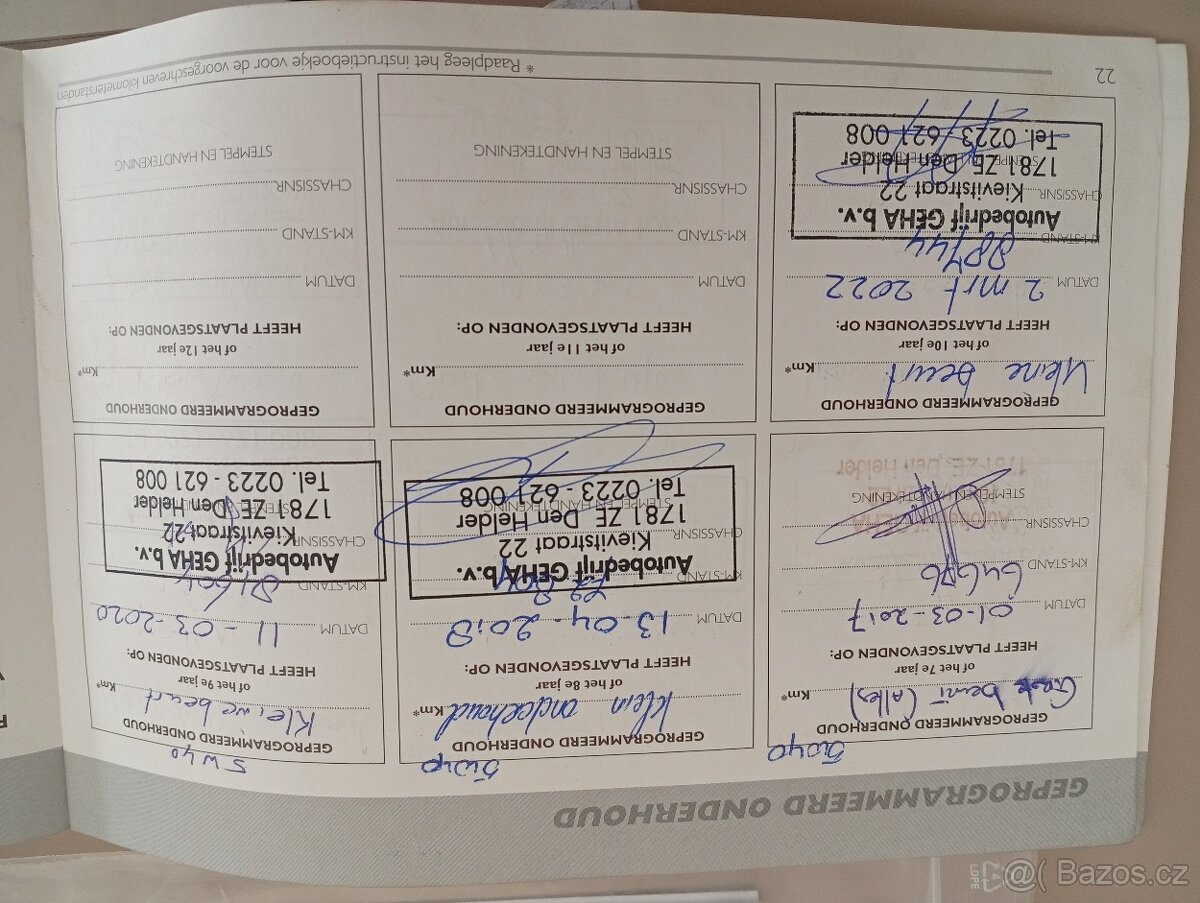 GEPROGRAMMEERD ONDERHOUD
5W40
GEPROGRAMMEERD ONDERHOUD
Grote beurt (alles) Km*
of het 7e jaar
HEEFT PLAATSGEVONDEN OP:
DATUM 01-03-2017
KM-STAND
CHASSISNR.
STEMPEL EN HANDTEKENING
5W40
GEPROGRAMMEERD ONDERHOUD
Klein onderhoud Km*
of het 8e jaar
HEEFT PLAATSGEVONDEN OP:
DATUM 13-04-2018
KM-STAND
Autobedrijf GEHA b.v.
Kievitstraat 22
CHASSISNR.
1781 ZE Den Helder
Tel. 0223 - 621 008
5W40
GEPROGRAMMEERD ONDERHOUD
Kleine beurt Km*
of het 9e jaar
HEEFT PLAATSGEVONDEN OP:
DATUM 11-03-2020
KM-STAND
Autobedrijf GEHA b.v.
Kievitstraat 22
CHASSISNR.
1781 ZE Den Helder
Tel. 0223 - 621 008
GEPROGRAMMEERD ONDERHOUD
Kleine beurt Km*
of het 10e jaar
HEEFT PLAATSGEVONDEN OP:
DATUM 2 mrt 2022
KM-STAND 88744
Autobedrijf GEHA b.v.
Kievitstraat 22
CHASSISNR.
1781 ZE Den Helder
Tel. 0223 - 621 008
GEPROGRAMMEERD ONDERHOUD
Km*
of het 11e jaar
HEEFT PLAATSGEVONDEN OP:
DATUM
KM-STAND
CHASSISNR.
STEMPEL EN HANDTEKENING
GEPROGRAMMEERD ONDERHOUD
Km*
of het 12e jaar
HEEFT PLAATSGEVONDEN OP:
DATUM
KM-STAND
CHASSISNR.
STEMPEL EN HANDTEKENING
22
* Raadpleeg het instructieboekje voor de voorgeschreven kilometerstanden
LDPE
Bazos.cz